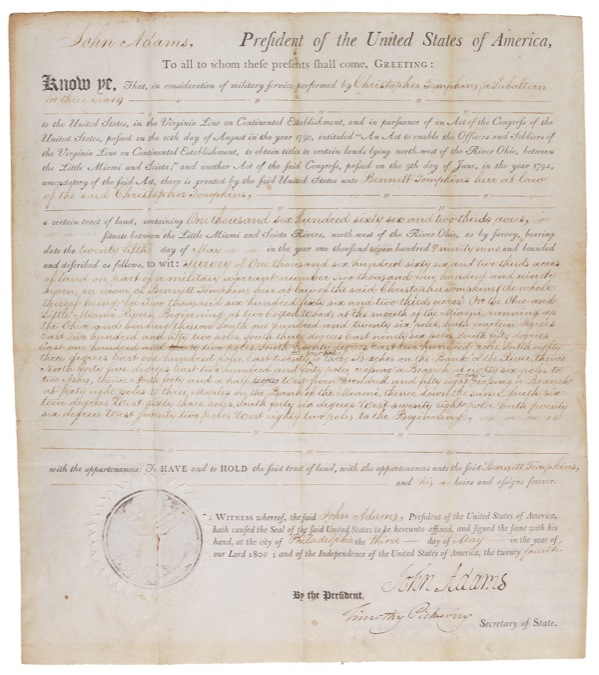 John Adams, President of the United States of America,
To all to whom these presents shall come, GREETING:
Know ye, That, in consideration of military service performed by Christopher Tompkins (a Subaltern
for three years)
to the United States, in the Virginia Line on Continental Establishment, and in pursuance of an Act of the Congress of the
United States, passed on the 10th day of August in the year 1790, intituled "An Act to enable the Officers and Soldiers of
the Virginia Line on Continental Establishment, to obtain titles to certain lands lying north-west of the River Ohio, between
the Little Miami and Sciota;" and another Act of the said Congress, passed on the 9th day of June, in the year 1794,
amendatory of the said Act, there is granted by the said United States unto Bennett Tompkins heir at law
of the said Christopher Tompkins,
a certain tract of land, containing One thousand six hundred sixty six and two thirds acres,
situate between the Little Miami and Sciota Rivers, north-west of the River Ohio, as by survey, bearing
date the twenty fifth day of May in the year one thousand seven hundred & ninety nine and bounded
and described as follows, to wit: Survey of One thousand six hundred sixty six and two thirds acres
of land on part of a military warrant number six thousand one hundred and ninety
seven, in favor of Bennett Tompkins heir at law of the said Christopher Tompkins (the whole
thereof being for Two thousand six hundred sixty six and two thirds acres) On the Ohio and
Little Miami Rivers, Beginning at two Cotton Woods at the mouth of the Miami, running up
the Ohio and binding thereon South one hundred and twenty six poles, South fourteen degrees
East two hundred and fifty two poles, South thirty degrees East ninety six poles, South fifty degrees
East one hundred and two poles, South seventy degrees East two hundred poles, South eighty
three degrees East one hundred poles, East to two Beeches on the Bank of the River, thence
North forty five degrees East two hundred and forty poles crossing a Branch at eighty six poles to
two Ashes, thence North forty and a half West five hundred and fifty eight crossing a Branch
at forty eight poles to three Maples on the Bank of the Miami, thence down the same South six-
teen degrees West sixty three poles, South forty six degrees West twenty eight poles, South seventy
six degrees West seventy two poles West eighty two poles to the Beginning,
with the appurtenances: To HAVE and to HOLD the said tract of land, with the appurtenances unto the said Bennett Tompkins,
and his heirs and assigns forever.
WITNESS whereof, the said John Adams, President of the United States of America,
hath caused the Seal of the said United States to be hereunto affixed, and signed the same with his
hand, at the city of Philadelphia the third day of May in the year of
our Lord 1800; and of the Independence of the United States of America, the twenty fourth.
John Adams
By the President,
Timothy Pickering
Secretary of State.